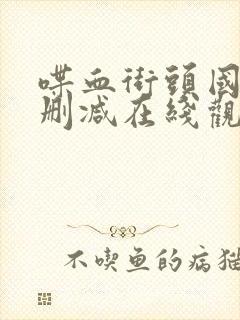 喋血街頭國
刪減在綫觀
不喫魚的病猫